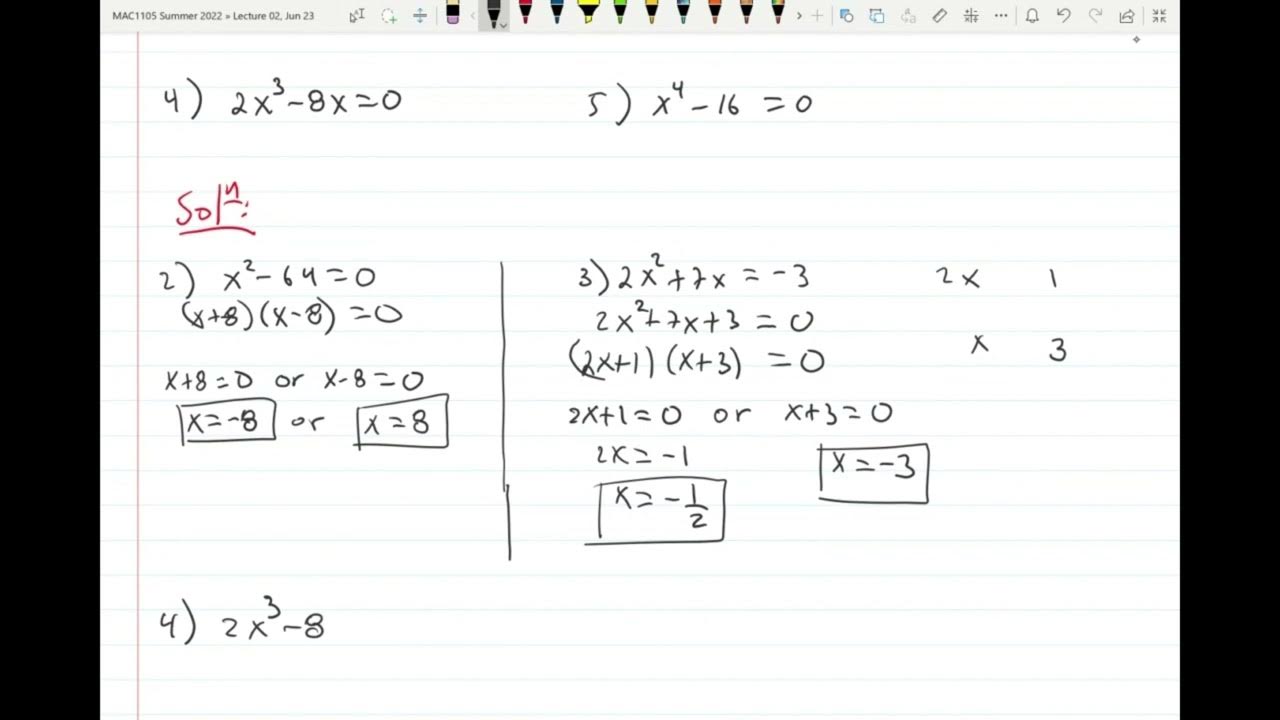 MAC1105 Summer 2022 » Lecture 02, Jun 23
4) 2x³-8x=0
5) x⁴-16=0
Solⁿ:
2) x²-64=0
(x+8)(x-8)=0
x+8=0 or x-8=0
x=-8 or x=8
3) 2x²+7x=-3
2x²+7x+3=0
(2x+1)(x+3)=0
2x+1=0 or x+3=0
2x=-1
x=-1/2
x=-3
2x 1
x 3
4) 2x³-8